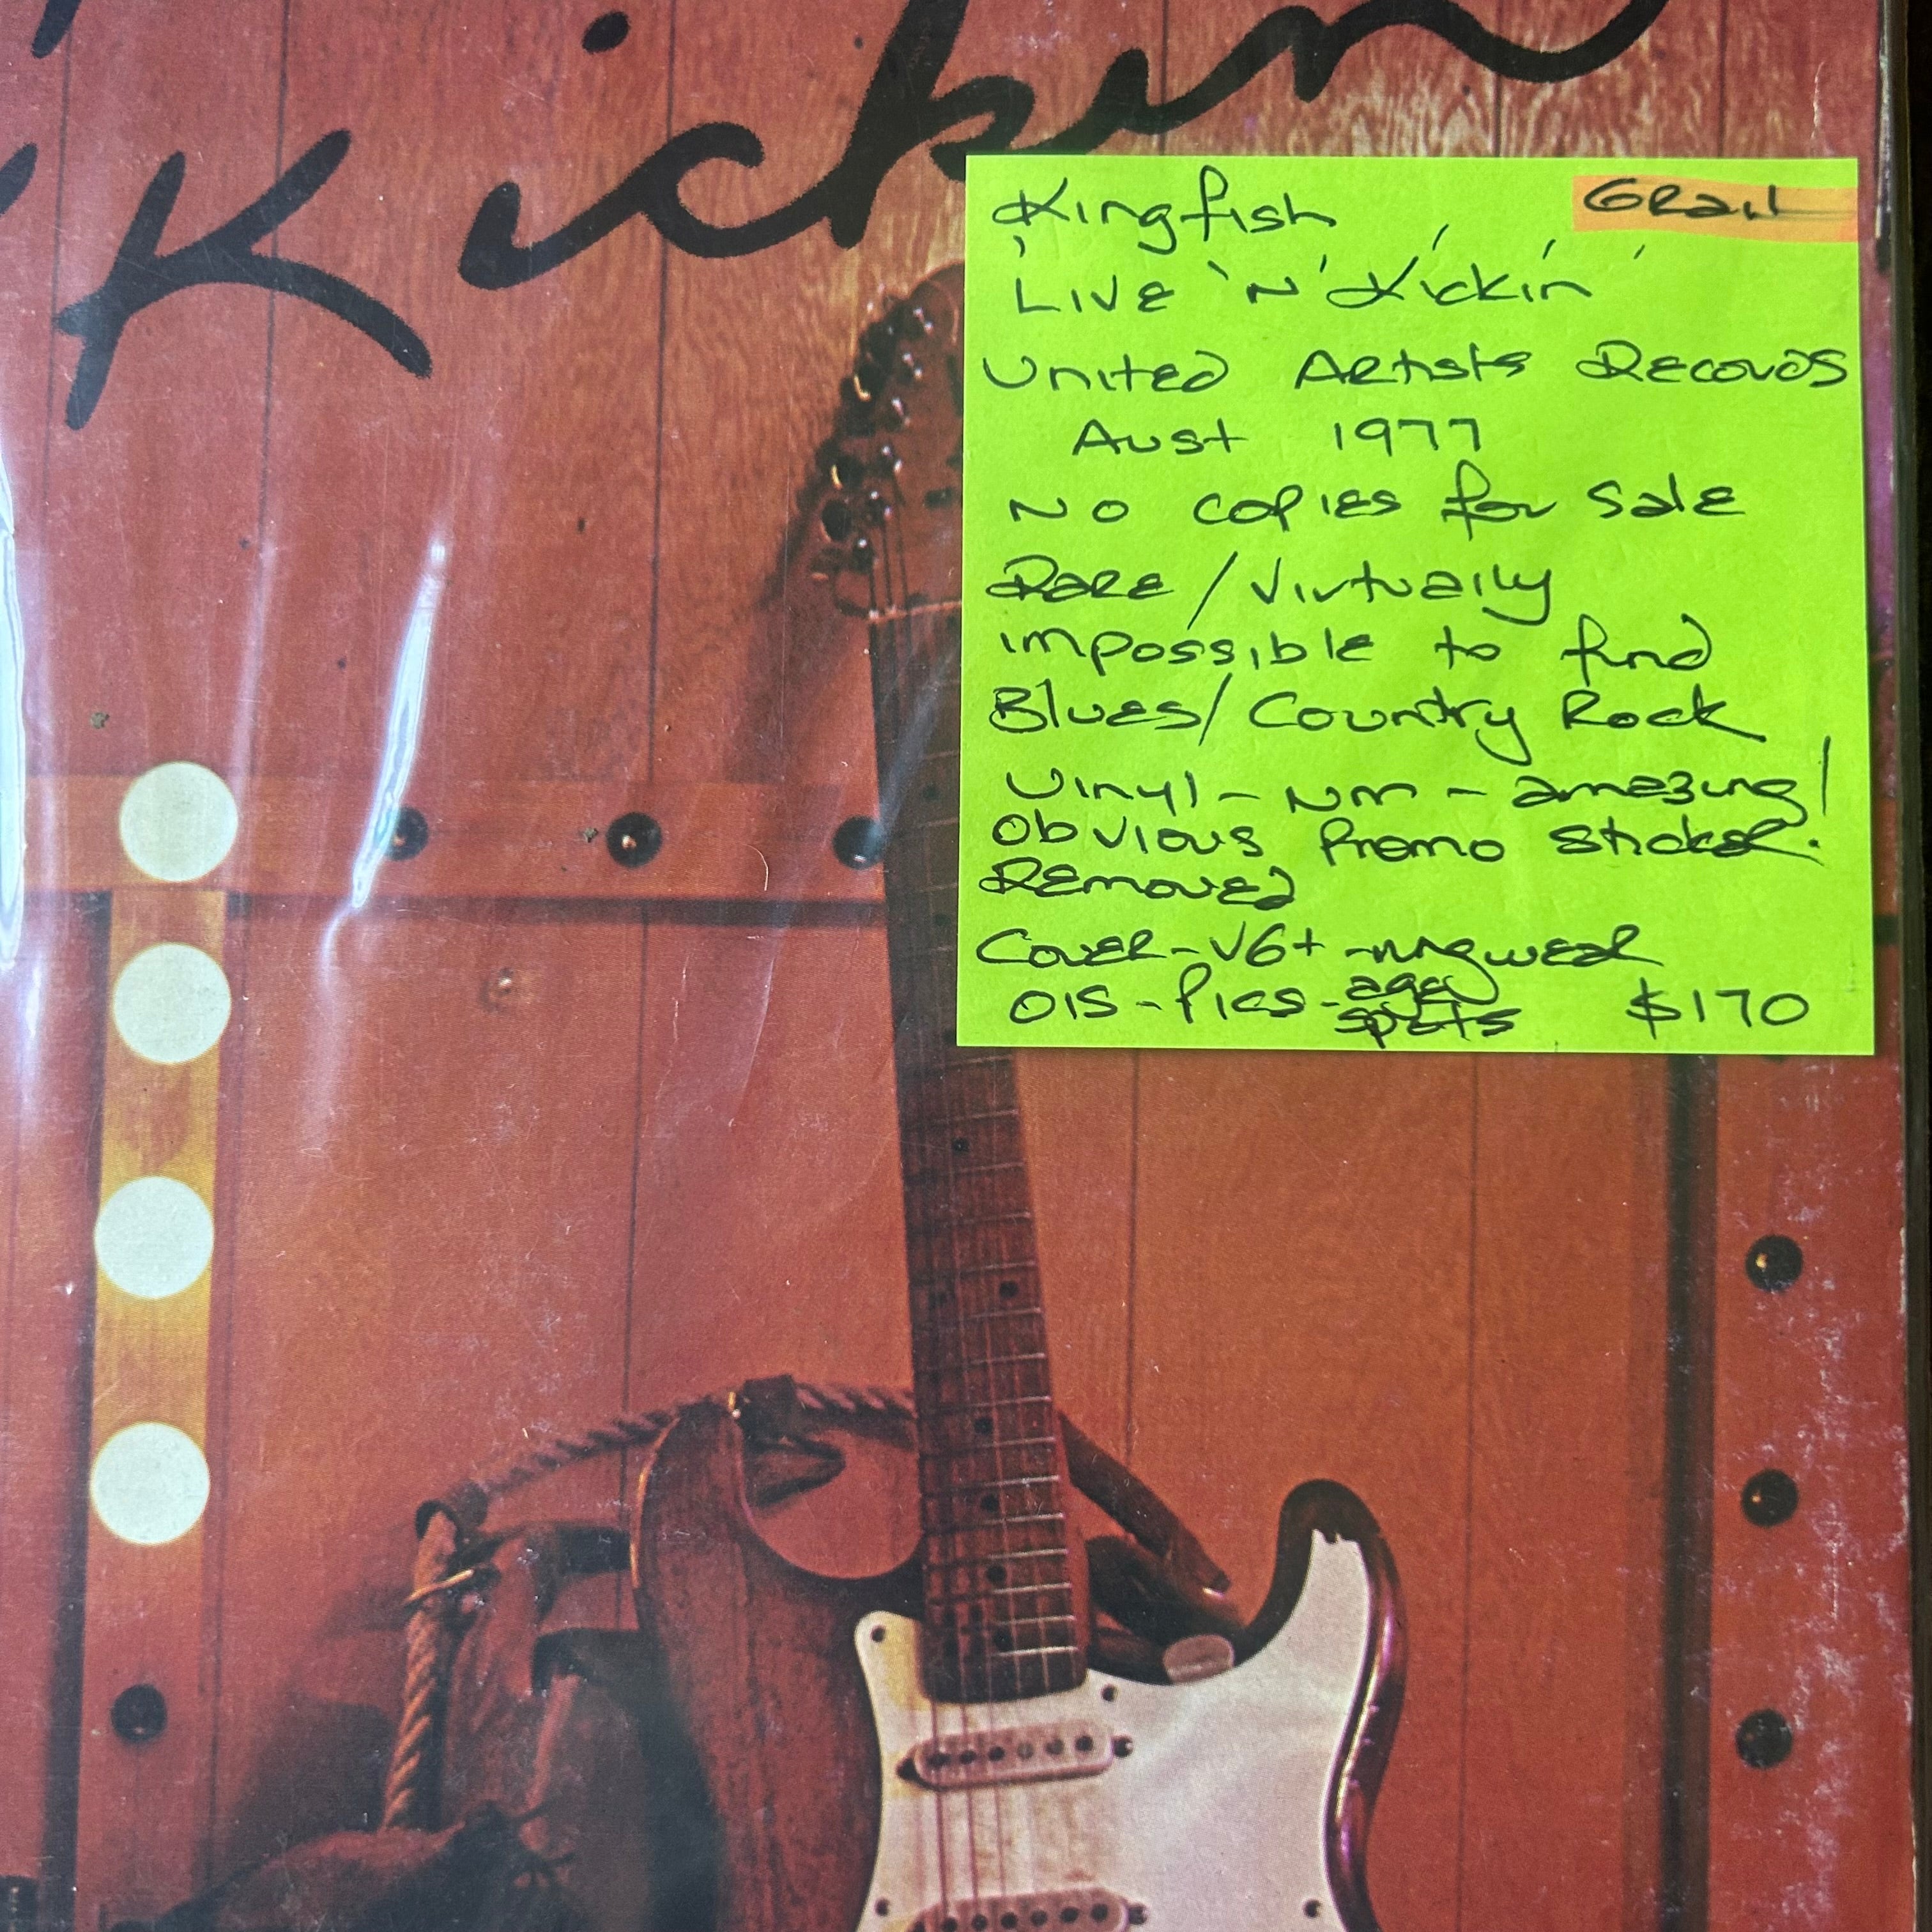 'n' Kickin'
Kingfish Grail
'Live 'N' Kickin'
United Artists Records
Aust 1977
No copies for sale
Rare / Virtually
impossible to find
Blues / Country Rock
Vinyl - NM - amazing!
obvious promo sticker.
Removed
Cover - VG+ - ringwear
OIS - Pics - age
spots $170